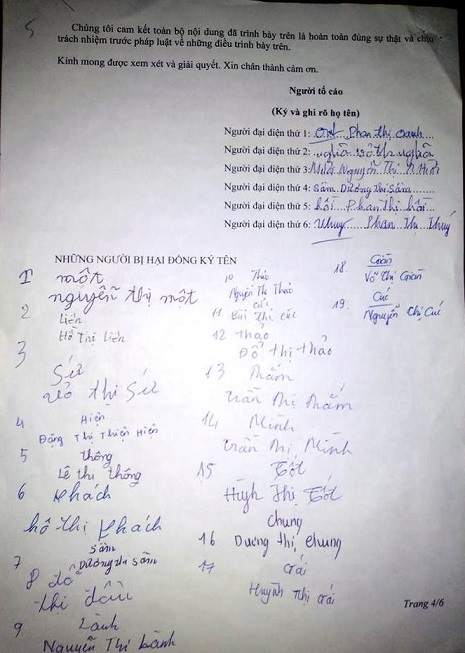 Chúng tôi cam kết toàn bộ nội dung đã trình bày trên là hoàn toàn đúng sự thật và chịu
trách nhiệm trước pháp luật về những điều trình bày trên.
Kính mong được xem xét và giải quyết. Xin chân thành cảm ơn.
Người tố cáo
(Ký và ghi rõ họ tên)
Người đại diện thứ 1: Oanh Phan thị Oanh
Người đại diện thứ 2: nghĩa võ thị nghĩa
Người đại diện thứ 3: Nguyễn Thị
Người đại diện thứ 4: Sâm Dương thị Sâm
Người đại diện thứ 5: hồi Phan thị hồi
Người đại diện thứ 6: Thuý Phan Thị Thuý
NHỮNG NGƯỜI BỊ HẠI ĐỒNG KÝ TÊN
1 một
nguyễn thị một
2 Liên
Hồ Thị Liên
3
Sứ
Võ thị Sứ
4 Hiện
Đặng Thị Thiện Hiện
5 thông
Lê thị thông
6 khách
hồ thị khách
7 Sâm
Dương thị Sâm
8 đô
thị đâu
9 Lành
Nguyễn Thị Lành
10 Thảo
Nguyễn Thị Thảo
11 cúc
Bùi Thị cúc
12 thảo
Đỗ thị thảo
13 thắm
trần thị thắm
14 Minh
trần thị Minh
15 Tốt
Huỳnh Thị Tốt
chung
16 Dương thị chung
17 Gái
Huỳnh Thị Gái
18. Giàn
Võ Thị Giàn
19. Cúc
Nguyễn Thị Cúc
Trang 4/6